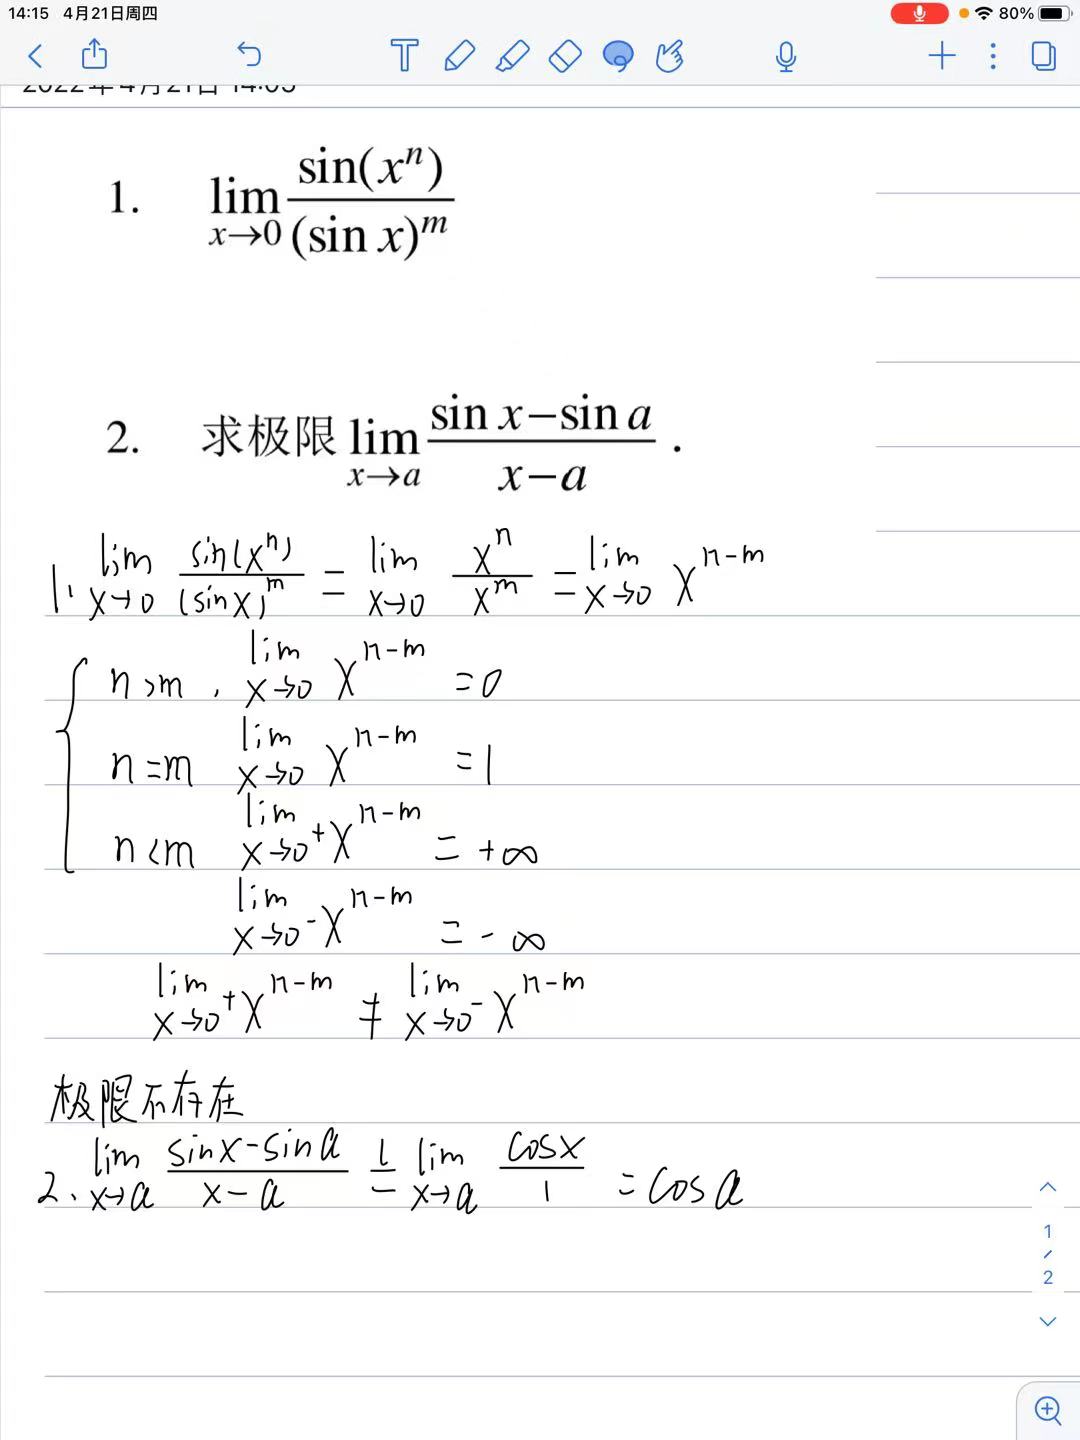 14:15 4月21日周四 80%
2022年4月21日 14:05
1. lim x→0 sin(xⁿ)/(sin x)ᵐ
2. 求极限 lim x→a (sin x−sin a)/(x−a) .
1. lim x→0 sin(xⁿ)/(sinx)ᵐ = lim x→0 xⁿ/xᵐ = lim x→0 xⁿ⁻ᵐ
{ n>m , lim x→0 xⁿ⁻ᵐ =0
n=m lim x→0 xⁿ⁻ᵐ =1
n<m lim x→0⁺ xⁿ⁻ᵐ = +∞
lim x→0⁻ xⁿ⁻ᵐ = -∞
lim x→0⁺ xⁿ⁻ᵐ ≠ lim x→0⁻ xⁿ⁻ᵐ
极限不存在
2. lim x→a (sinx-sina)/(x-a) L= lim x→a cosx/1 = cosa
1
/
2